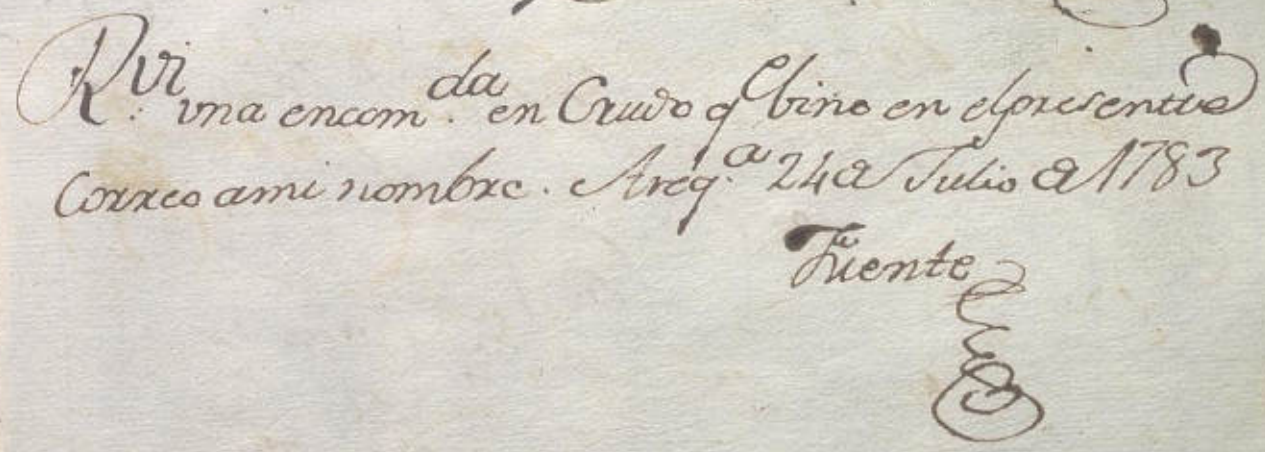 R.vi vna encom.da en Crudo qe bino en elpresente
Correo ami nombre. Areq.a 24 de Julio de 1783
Fuente